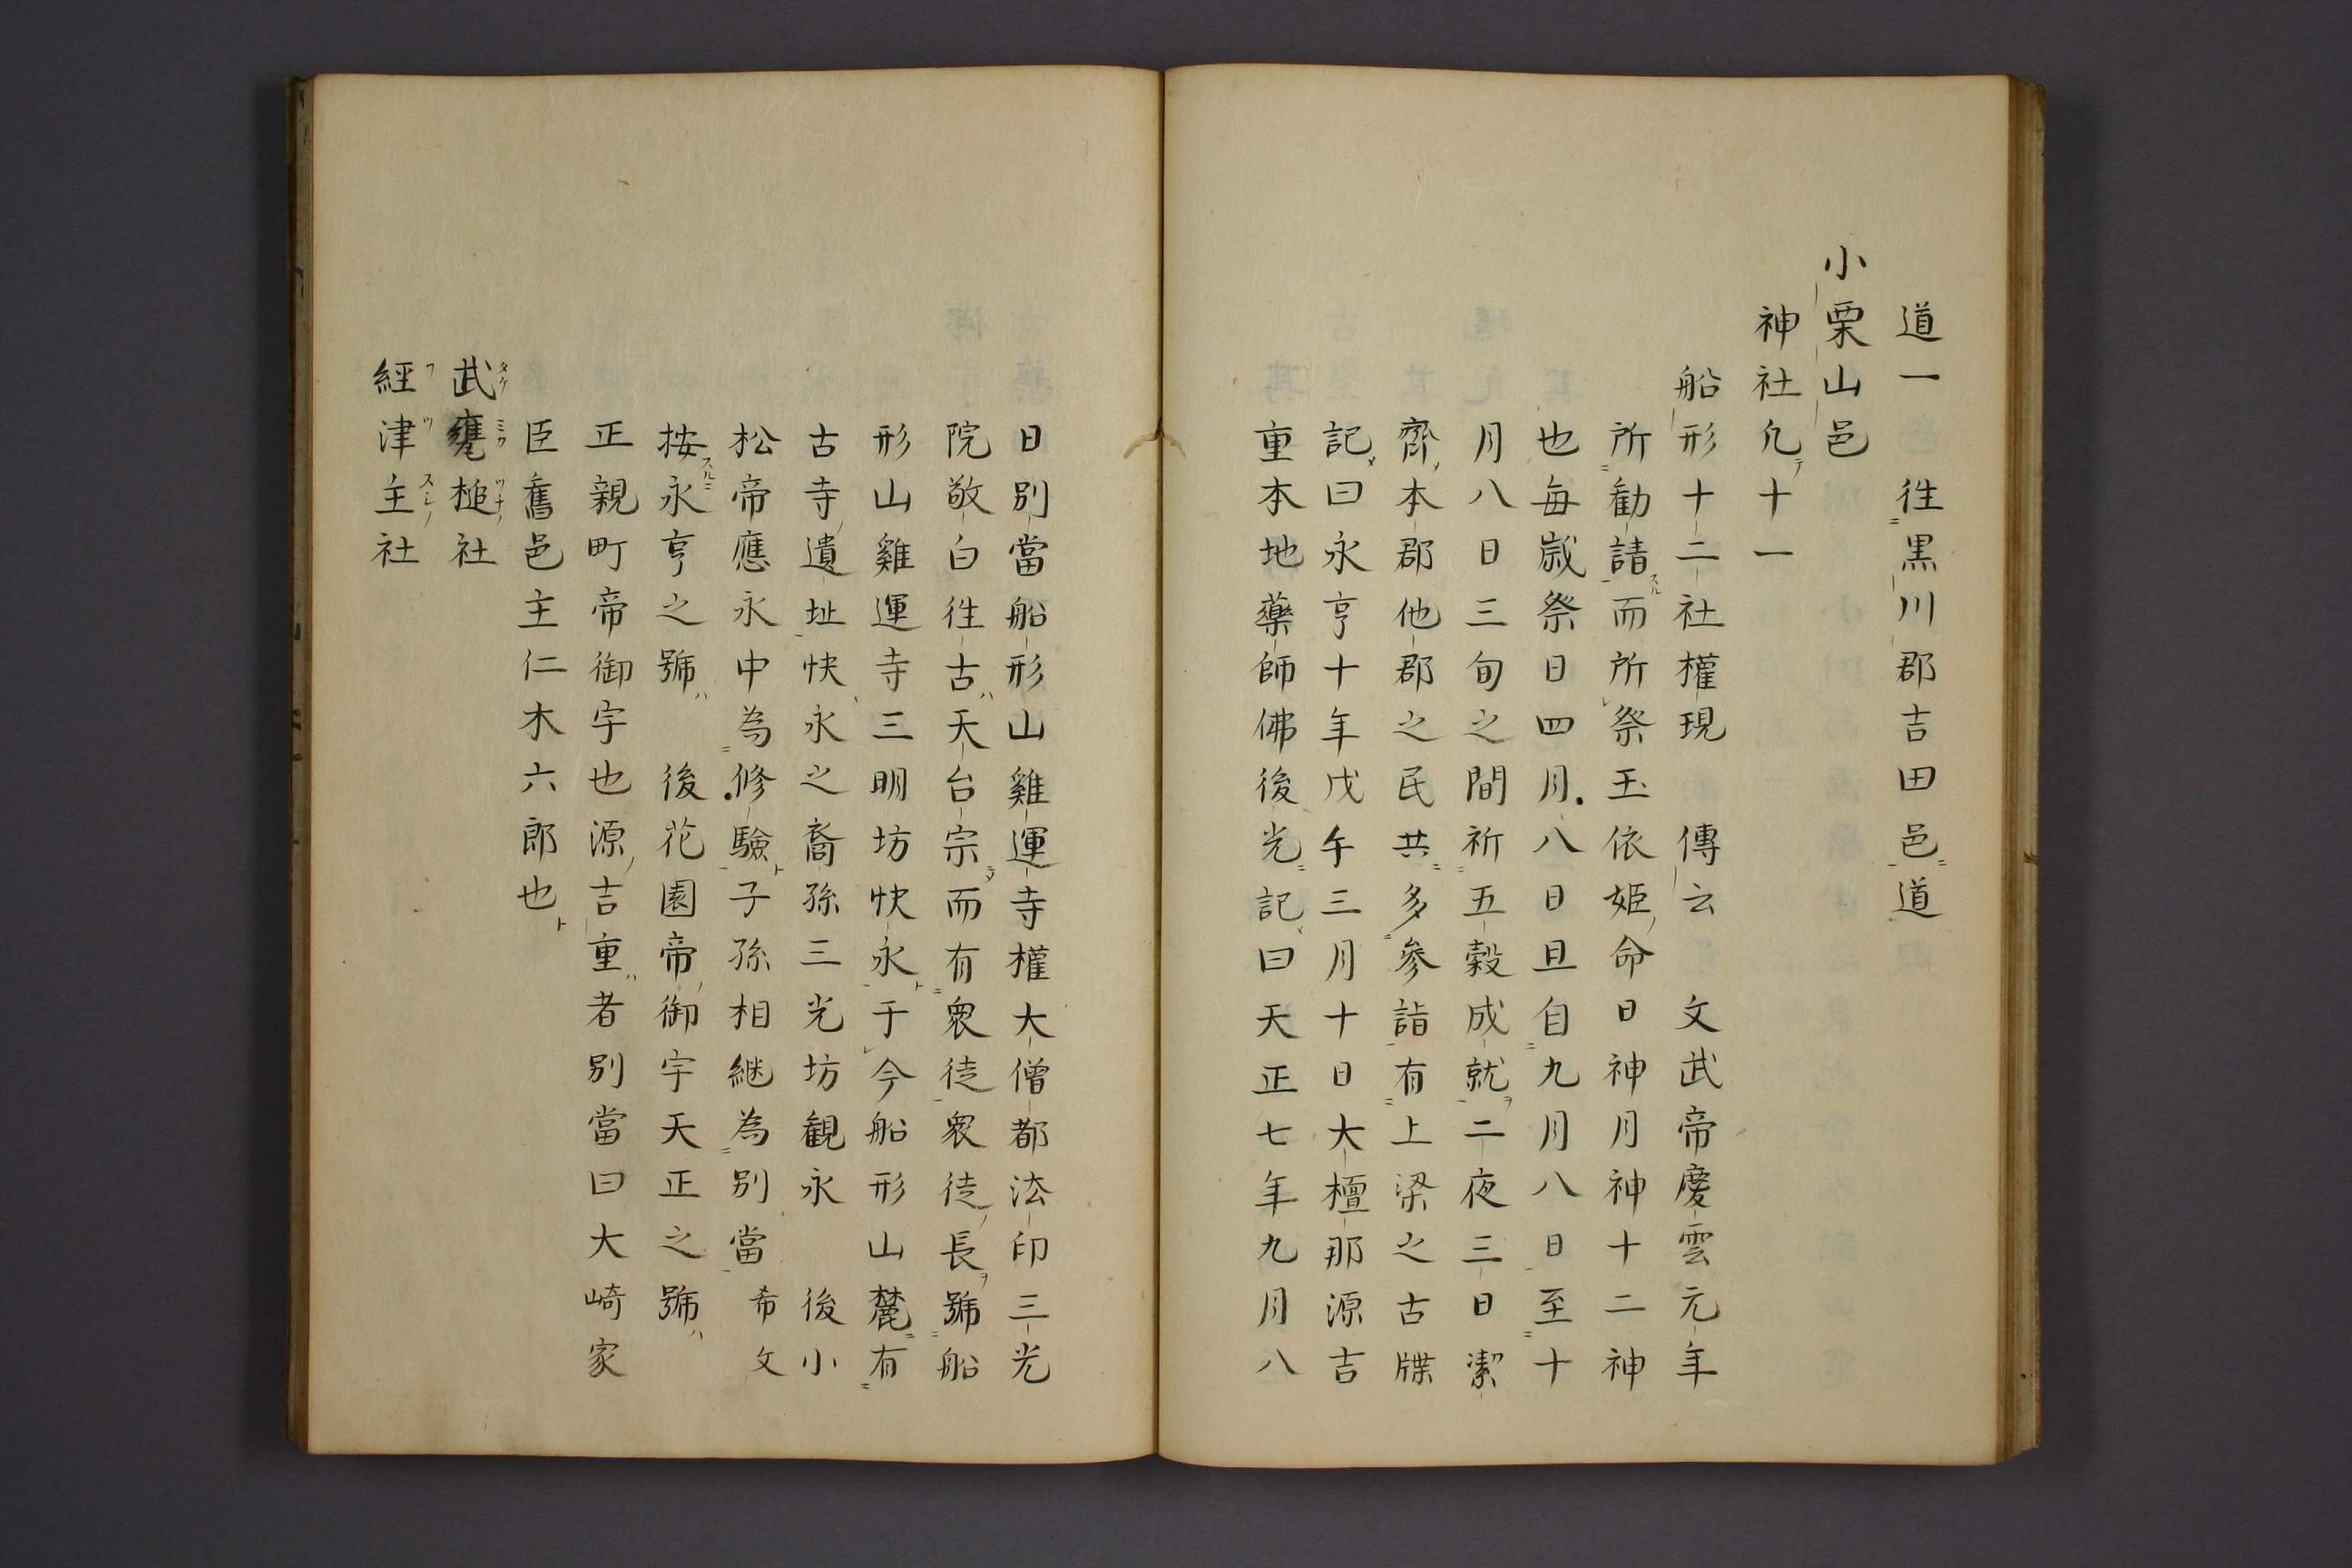 道一　徃黒川郡吉田邑道
小栗山邑
神社凢十一
船形十二社權現　傳云　文武帝慶雲元年
所勧請而所祭玉依姫命日神月神十二神
也毎歳祭日四月八日旦自九月八日至十
月八日三旬之間祈五穀成就二夜三日潔
齋本郡他郡之民共多參詣有上梁之古牒
記曰永亨十年戊午三月十日大檀那源吉
重本地藥師佛後光記曰天正七年九月八
日別當船形山雞運寺權大僧都法印三光
院敬白徃古天台宗而有衆徒衆徒長號船
形山雞運寺三明坊快永于今船形山麓有
古寺遺址快永之裔孫三光坊観永　後小
松帝應永中為修驗子孫相継為別當 希文
按永亨之號　後花園帝御宇天正之號
正親町帝御宇也源吉重者別當曰大崎家
臣舊邑主仁木六郎也
武甕槌社
經津主社